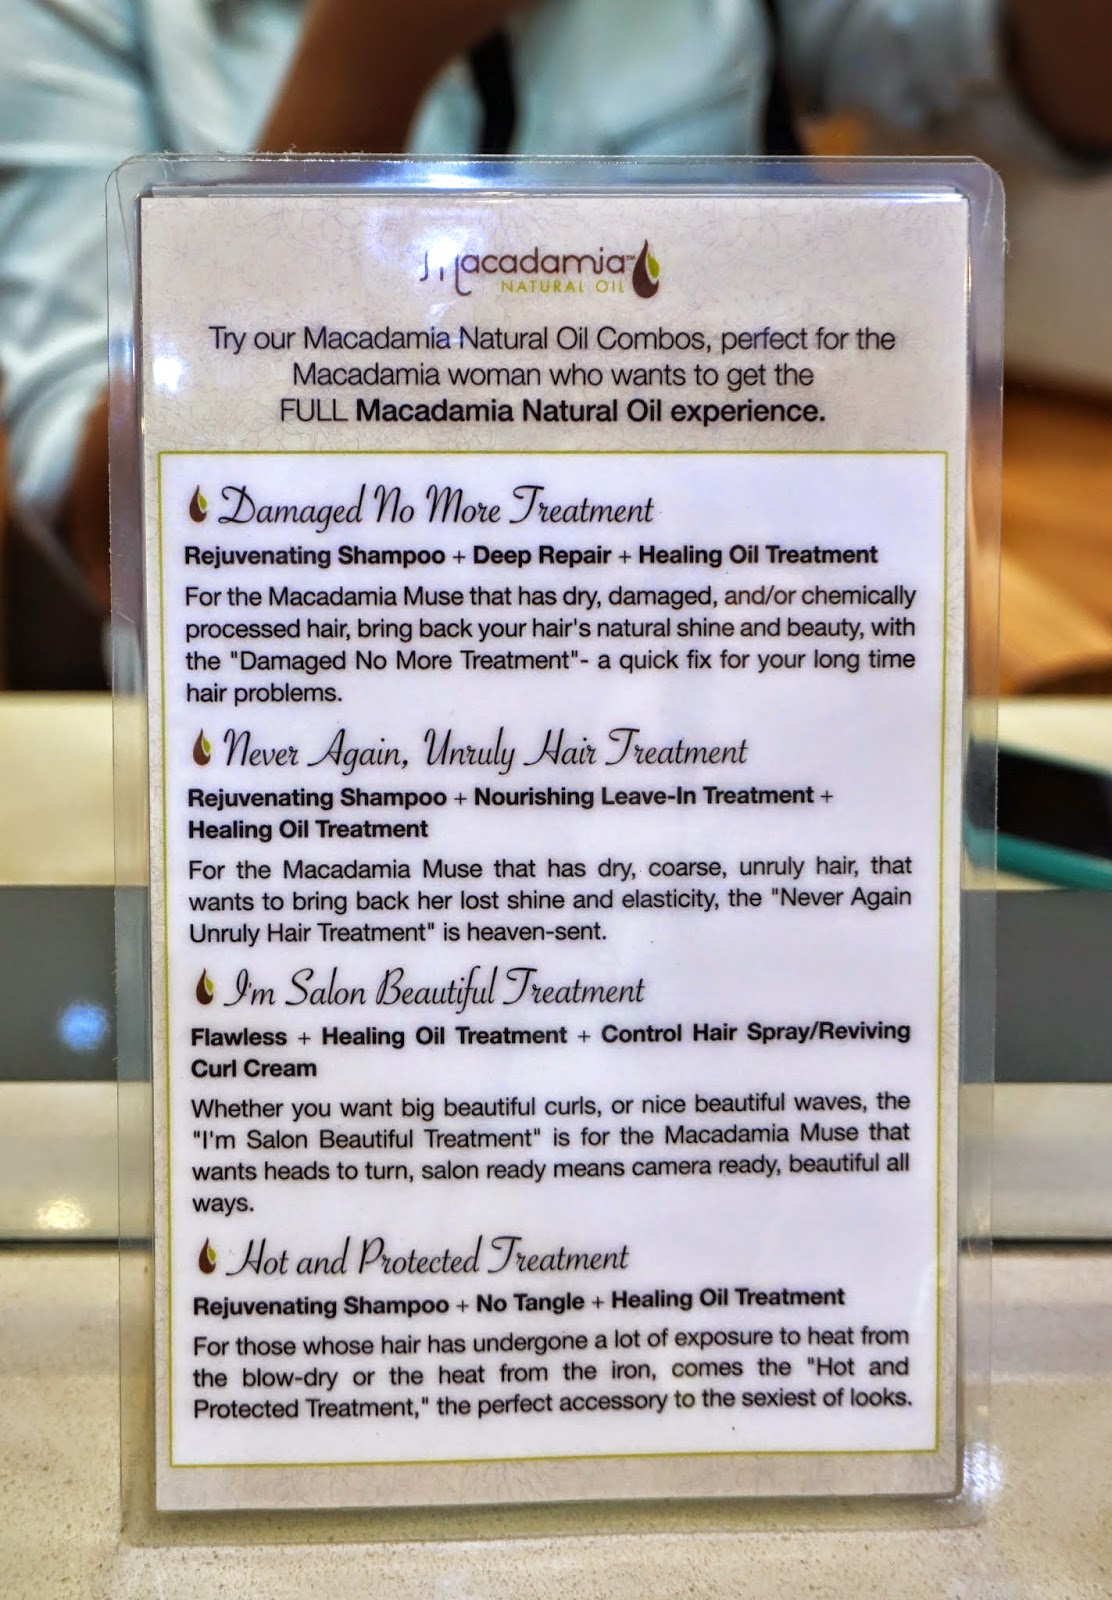 Macadamia™
NATURAL OIL
Try our Macadamia Natural Oil Combos, perfect for the
Macadamia woman who wants to get the
FULL Macadamia Natural Oil experience.
Damaged No More Treatment
Rejuvenating Shampoo + Deep Repair + Healing Oil Treatment
For the Macadamia Muse that has dry, damaged, and/or chemically
processed hair, bring back your hair's natural shine and beauty, with
the "Damaged No More Treatment"- a quick fix for your long time
hair problems.
Never Again, Unruly Hair Treatment
Rejuvenating Shampoo + Nourishing Leave-In Treatment +
Healing Oil Treatment
For the Macadamia Muse that has dry, coarse, unruly hair, that
wants to bring back her lost shine and elasticity, the "Never Again
Unruly Hair Treatment" is heaven-sent.
I'm Salon Beautiful Treatment
Flawless + Healing Oil Treatment + Control Hair Spray/Reviving
Curl Cream
Whether you want big beautiful curls, or nice beautiful waves, the
"I'm Salon Beautiful Treatment" is for the Macadamia Muse that
wants heads to turn, salon ready means camera ready, beautiful all
ways.
Hot and Protected Treatment
Rejuvenating Shampoo + No Tangle + Healing Oil Treatment
For those whose hair has undergone a lot of exposure to heat from
the blow-dry or the heat from the iron, comes the "Hot and
Protected Treatment," the perfect accessory to the sexiest of looks.